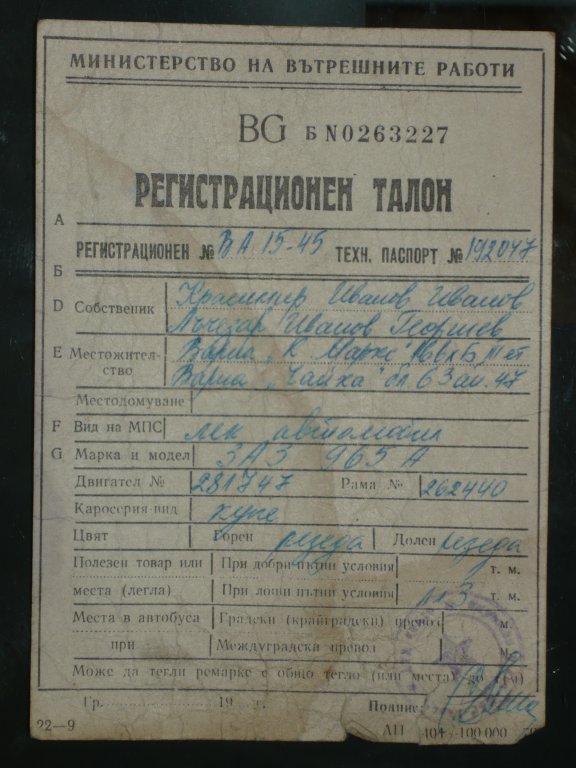 МИНИСТЕРСТВО НА ВЪТРЕШНИТЕ РАБОТИ
BG Б N0263227
РЕГИСТРАЦИОНЕН ТАЛОН
А
РЕГИСТРАЦИОНЕН № ВА 15-45 ТЕХН. ПАСПОРТ № 192047
Б
D Собственик Красимир Иванов Иванов
Лъчезар Иванов Георгиев
Е Местожител- Варна „К. Маркс" вх Б III ет
ство Варна „Чайка" бл. 63 ап. 47
Местодомуване
F Вид на МПС лек автомобил
G Марка и модел ЗАЗ 965 А
Двигател № 281747 Рама № 262440
Каросерия-вид купе
Цвят Горен резеда Долен резеда
Полезен товар или При добри пътни условия т. м.
места (легла) При лоши пътни условия т. м.
Места в автобуса Градски (крайградски) превоз м.
при Междуградски превоз м.
Може да тегли ремарке с общо тегло (или места) до т(м)
Гр. 19 г. Подпис
22—9 ДП 404 100 000